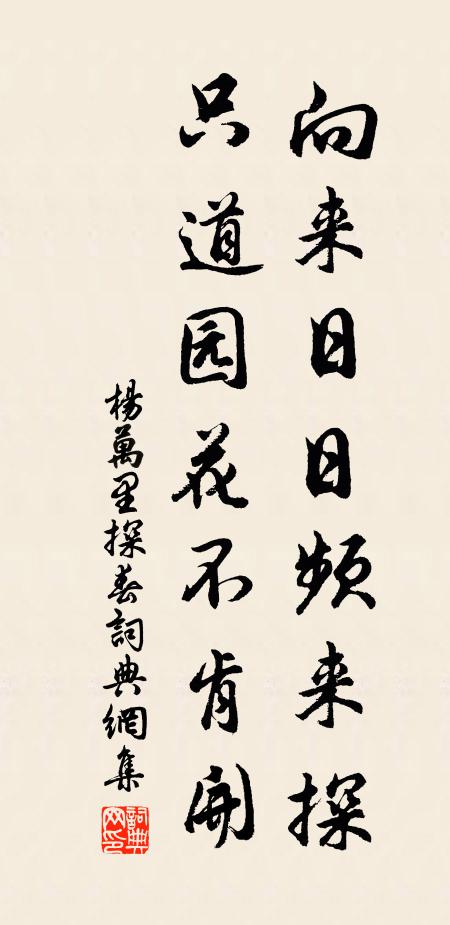 向来日日频来探
只道园花不肯開
楊萬里探春詞典網集
詞典网印